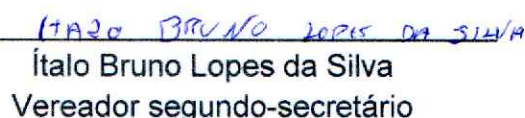 ITALO BRUNO LOPES DA SILVA
Ítalo Bruno Lopes da Silva
Vereador segundo-secretário